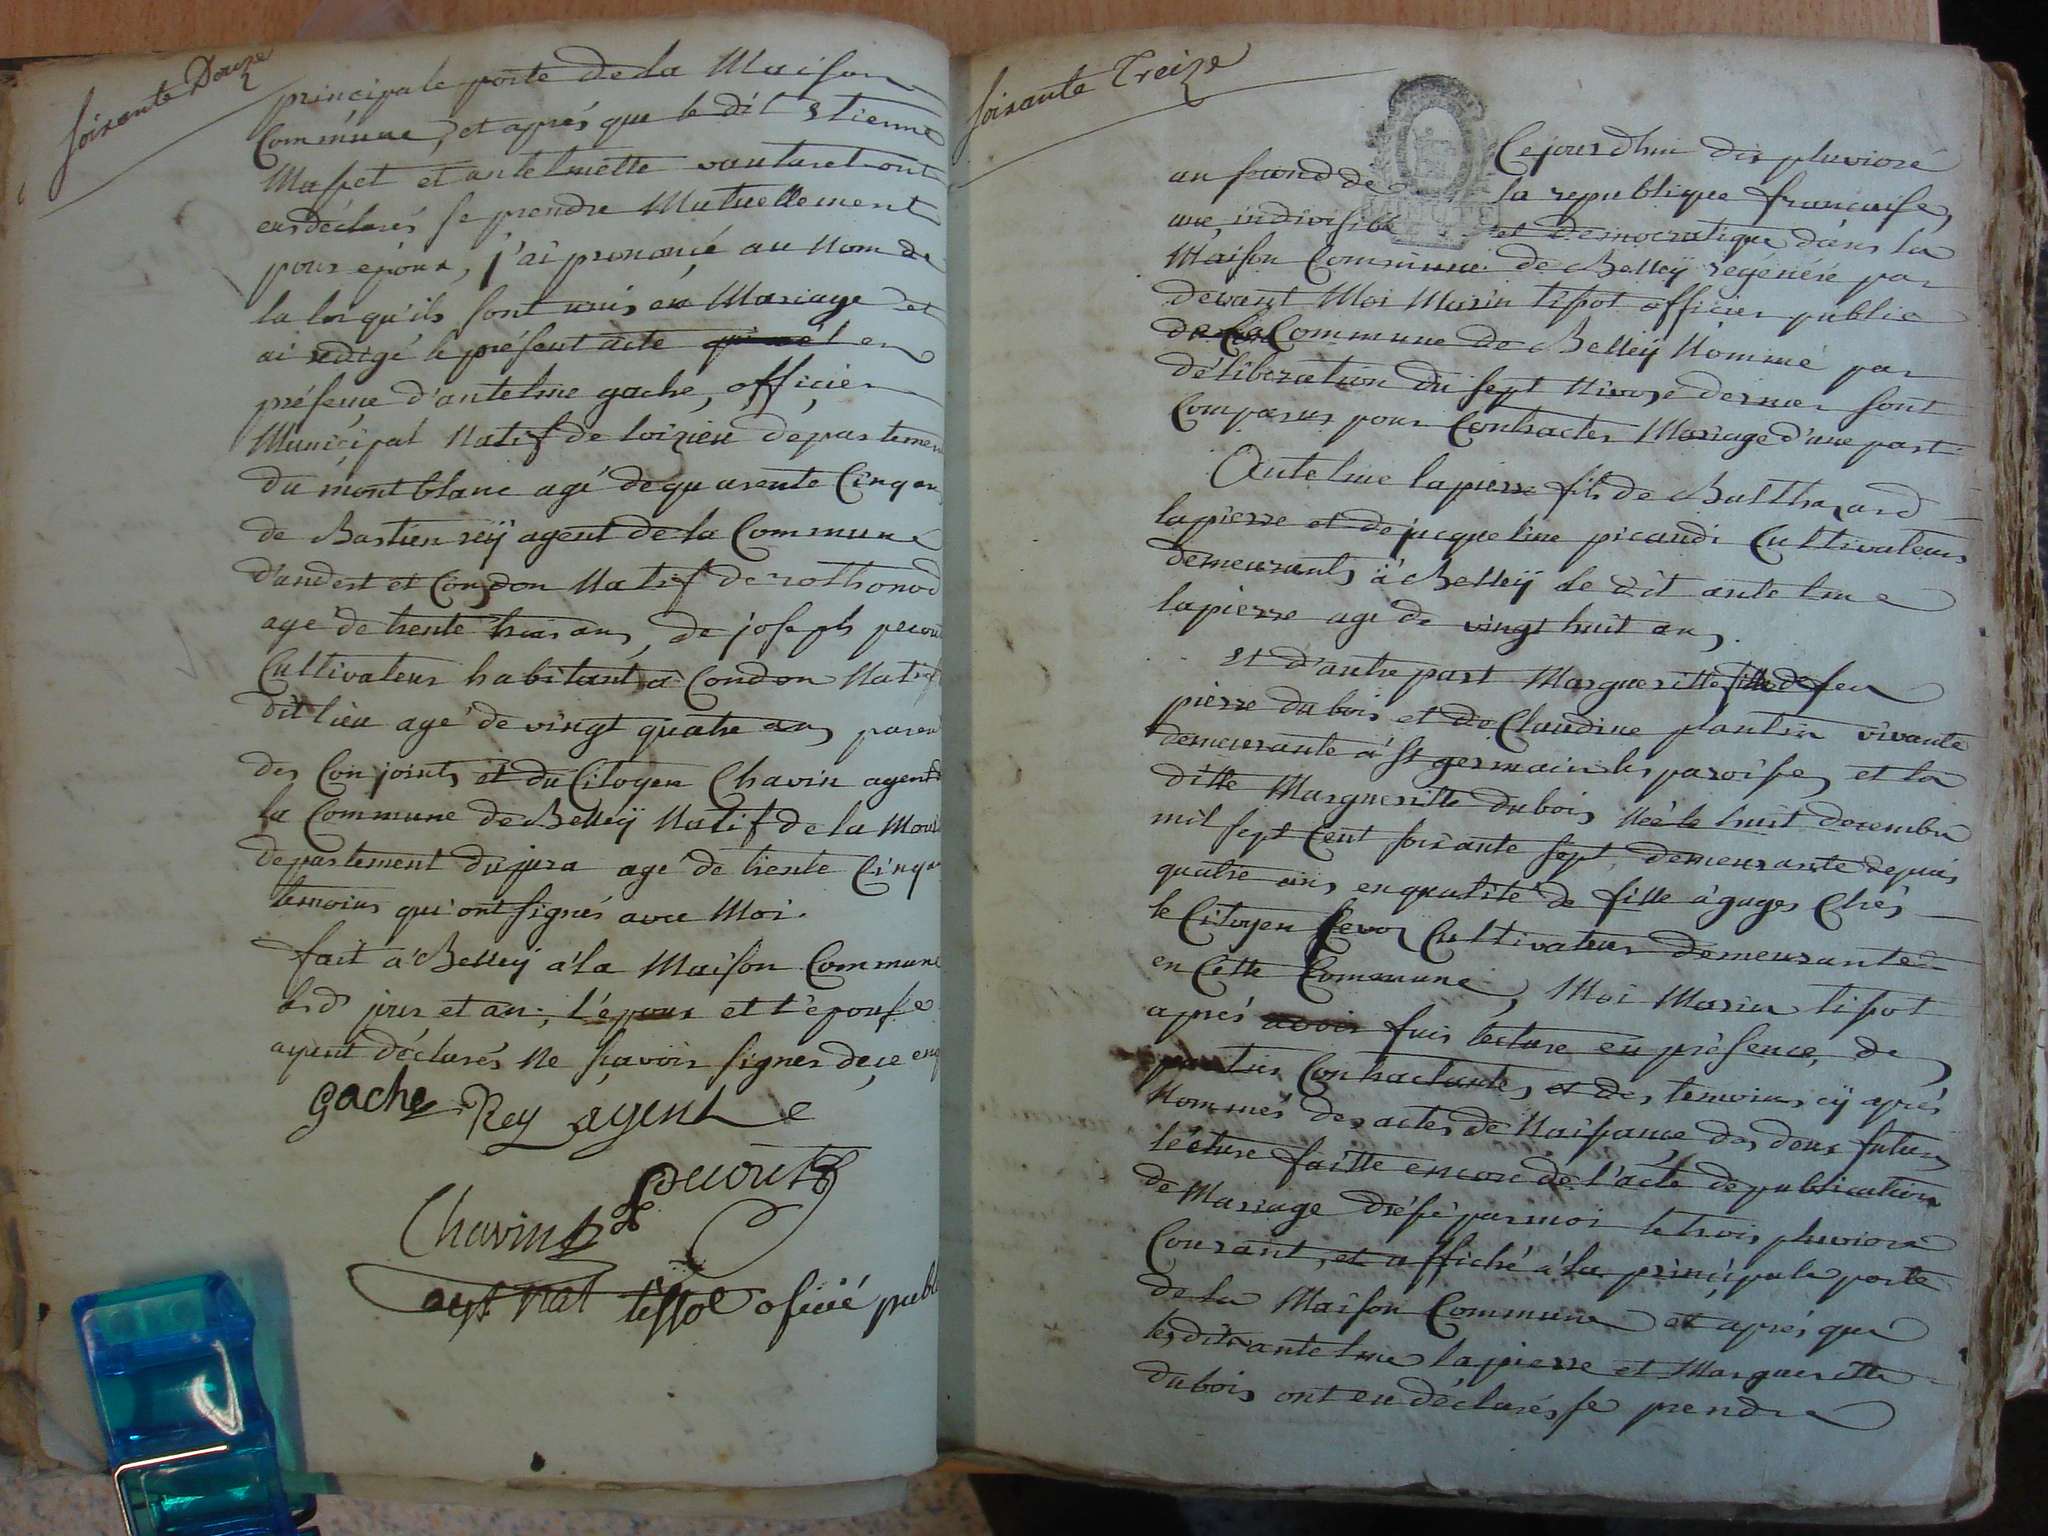 soixante Douze
principale porte de la Maison
Commune, et aprés que le dit Etienne
Masset et antelmette vauturet ont
eu déclarés se prendre Mutuellement
pour epoux, j'ai prononcé au Nom de
la loi qu'ils sont unis en Mariage et
ai redigé le présent acte en
présence d'antelme gache, officier
Municipal Natif de loizieu departemen
du mont blanc agé de quarente Cinq an
de Bastien reÿ agent de la Commune
d'andert et Condon Natif de rothonod
agé de trente trois ans, de joseph pecou
Cultivateur habitant a Condon Natif
dit lieu agé de vingt quatre ans paren
des Conjoints et du Citoyen Chavin agent
la Commune de Belleÿ Natif de la Mou
departement du jura agé de trente Cinq
temoins qui ont signés avec Moi.
fait a Belleÿ a la Maison Commune
jour et an, l'époux et l'épouse
ayant déclarés Ne sçavoir signer de ce enq
gache Rey agent
pecoutt
Chavin
agt nat tissot oficié publ
soixante Treize
Cejourdhui dix pluviose
an second de la republique francaise,
une, indivisible et democratique dans la
Maison Commune de Belleÿ regénéré par
devant Moi Marin tissot officier public
de la Commune de Belleÿ Nommé par
déliberation du sept Nivose dernier sont
Comparus pour Contracter Mariage d'une part
Antelme lapierre fils de Balthazard
lapierre et de jacqueline picaudi Cultivateurs
demeurants a Belleÿ le dit antelme
lapierre agé de vingt huit ans,
et d'autre part Margueritte fille de feu
pierre dubois et de Claudine plantin vivante
demeurante a St germain les paroisses et la
ditte Margueritte dubois Née le huit decembre
mil sept Cent soixante sept, demeurante depuis
quatre ans en qualité de fille a gages Chés
le Citoyen Cultivateur demeurante
en Cette Commune, Moi Marin tissot
aprés avoir fais lecture en présence, de
parties Contractantes et des temoins cÿ aprés
Nommés des actes de Naissance des deux futurs
lécture faitte encore de l'acte de publication
de Mariage dréssé par moi le trois pluviose
Courant, et affiché a la principale porte
de la Maison Commune et aprés que
les dits antelme lapierre et Marguerite
dubois ont eu déclarés se prendre